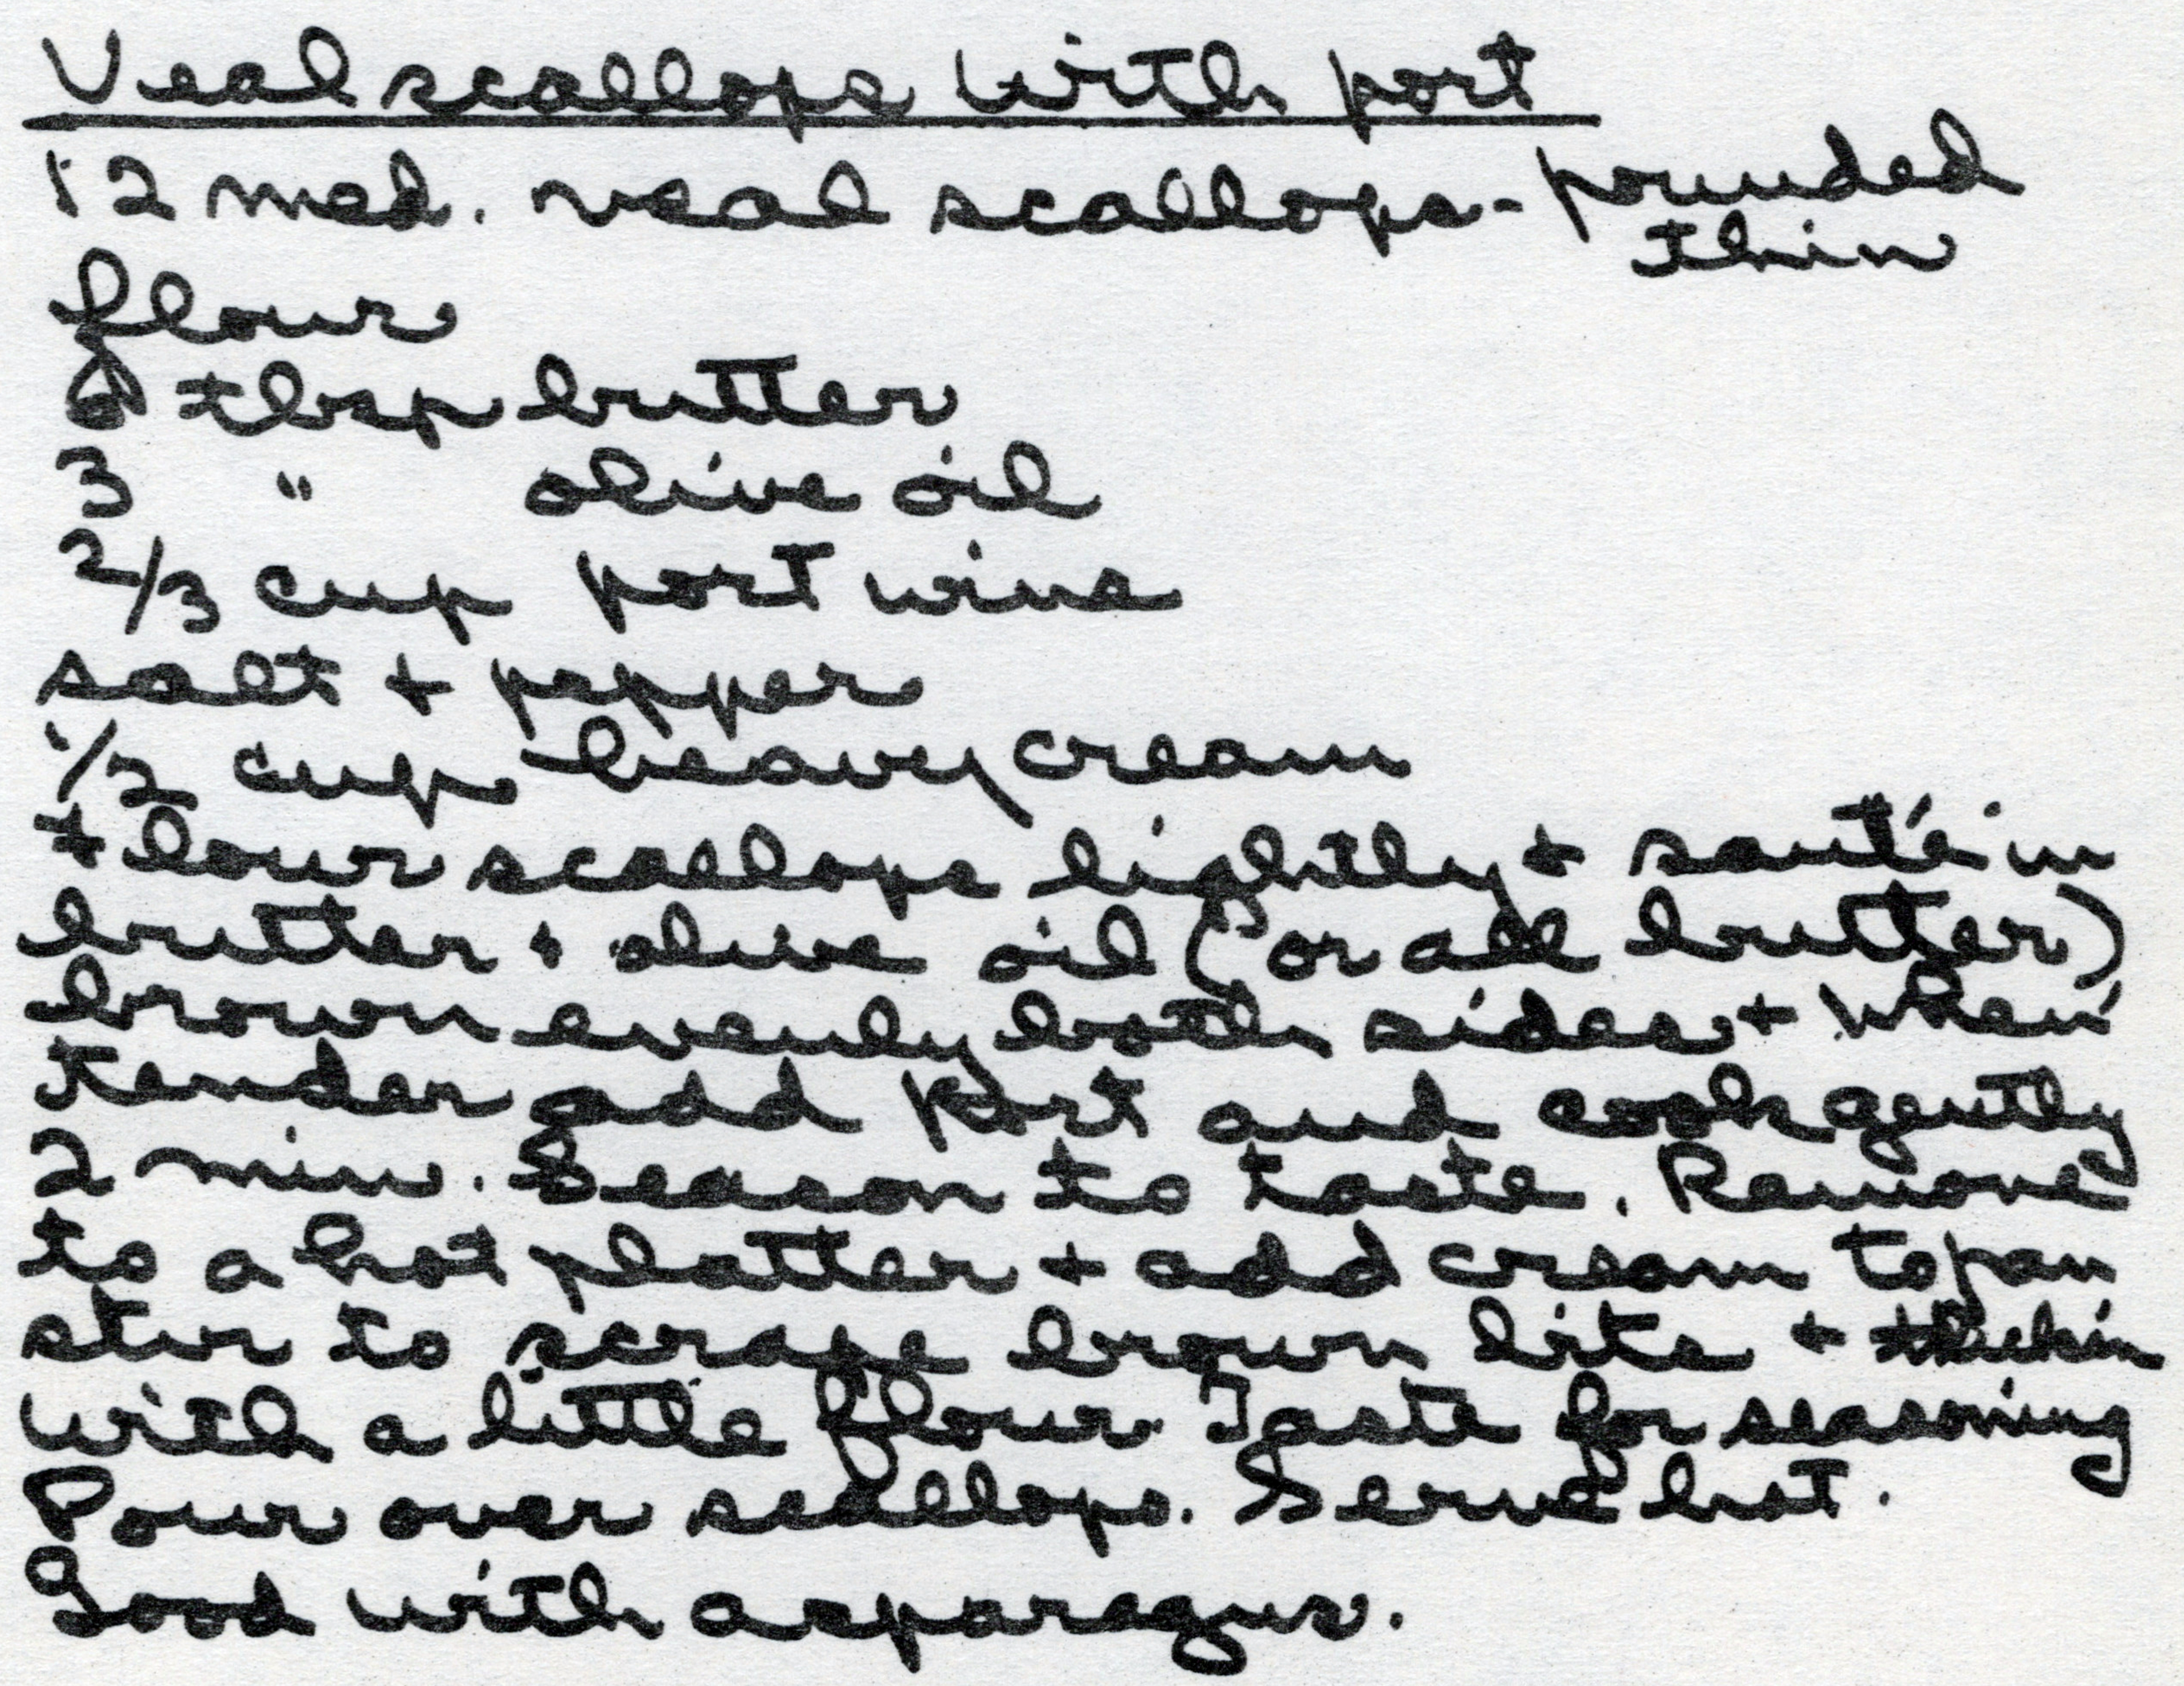 Veal scallops with port
12 med. veal scallops - pounded
thin
flour
6 tbsp butter
3 " olive oil
2/3 cup port wine
salt + pepper
1/2 cup heavy cream
flour scallops lightly + sauté in
butter + olive oil (or all butter)
brown evenly both sides + when
tender add port and cook gently
2 min. Season to taste. Remove
to a hot platter + add cream to pan
stir to scrape brown bits + thickin
with a little flour. Taste for seasoning
Pour over scallops. Serve hot.
Good with asparagus.